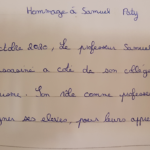 Hommage à Samuel Paty
octobre 2020, Le professeur Samuel
a coté de son collège
Son rôle comme professeur
ses élèves, pour leurs